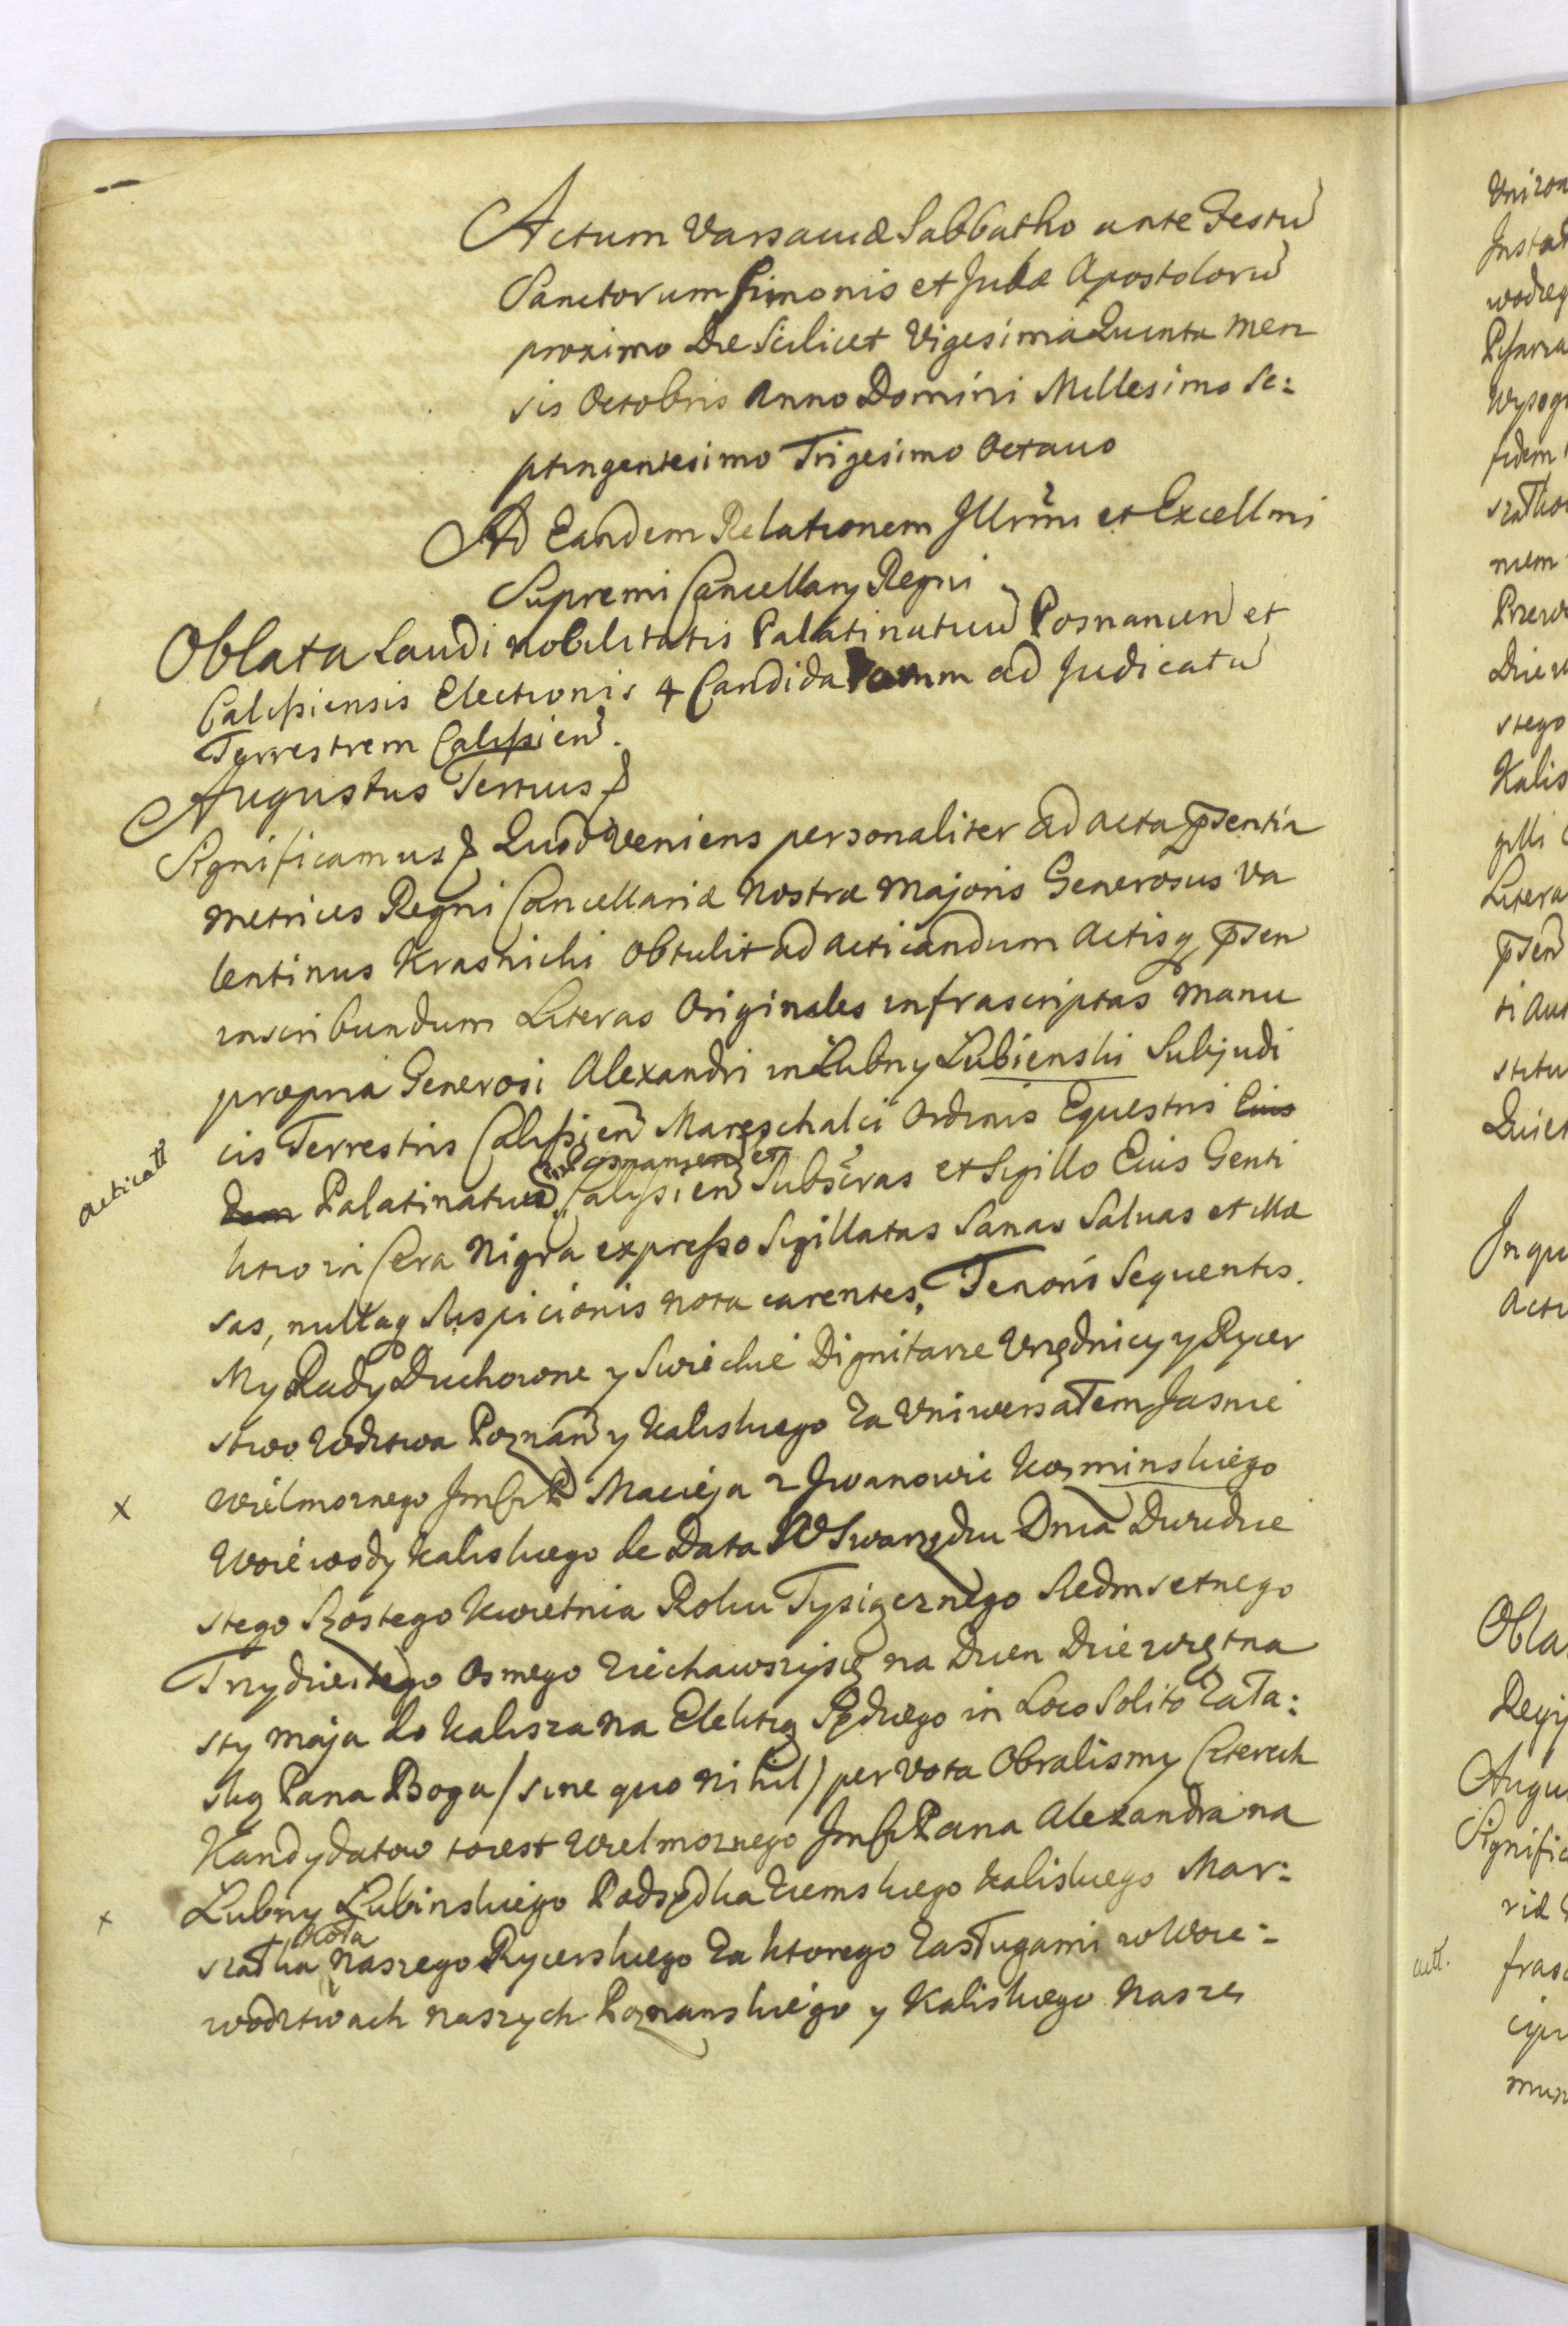 Actum Varsaviæ Sabbatho ante Festū
Sanctorum Simonis et Judæ Apostolorū
proximo Die Scilicet Vigesima Quinta Men
sis Octobris Anno Domini Millesimo Se:
ptingentesimo Trigesimo Octavo
Ad Eandem Relationem Illrmi et Excellmi
Supremi Cancellarÿ Regni
Oblata Laudi Nobilitatis Palatinatuū Posnanien et
Calissiensis Electionis 4 Candidatorum ad Judicatū
Terrestrem Calissien.
Augustus Tertius
Significamus Quod Veniens personaliter ad acta p̄sentia
Metrices Regni Cancellariæ Nostræ Majoris Generosus Va
lentinus Krasnicki Obtulit ad acticandum Actisq p̄sen
inscribendum Literas Originales infrascriptas Manu
propria Generosi Alexandri in Lubny Lubienski Subjudi
cis Terrestris Calissien Mareschalci Ordinis Equestris Eius
dem Palatinatuū Posnanien et Calissien Subscras et Sigillo Eius Genti
litio in Cera Nigra expresso Sigillatas Sanas Salvas et Illæ
sas, nullaq Suspicionis nota carentes, Tenoris Sequentis.
acticatt
My Rady Duchowne y Swieckie Dignitarze Urzędnicy y Rycer
stwo Wdztwa Poznań y Kaliskiego Za Uniwersałem Jasnie
x Wielmoznego JmCi P Macieja z Iwanowic Kozminskiego
Woiewody Kaliskiego de Data W Swarzędzu Dnia Dwudzie
stego Szostego Kwietnia Roku Tysiącznego Siedmsetnego
Trzydziestego Osmego Ziechawszysię na Dzien Dziewiętna
sty Maja do Kalisza na Elekcią Sędziego in Loco Solito Za Ła:
ską Pana Boga /sine quo nihil/ per Vota Obralismy Czterech
Kandydatow to iest Wielmoznego JmCi Pana Alexandra na
x Lubny Lubinskiego Podsędka Ziemskiego Kaliskiego Mar:
szałka Koła Naszego Rycerskiego Za ktorego Zasługami w Woie:
wodztwach naszych Poznanskiego y Kaliskiego Nasze